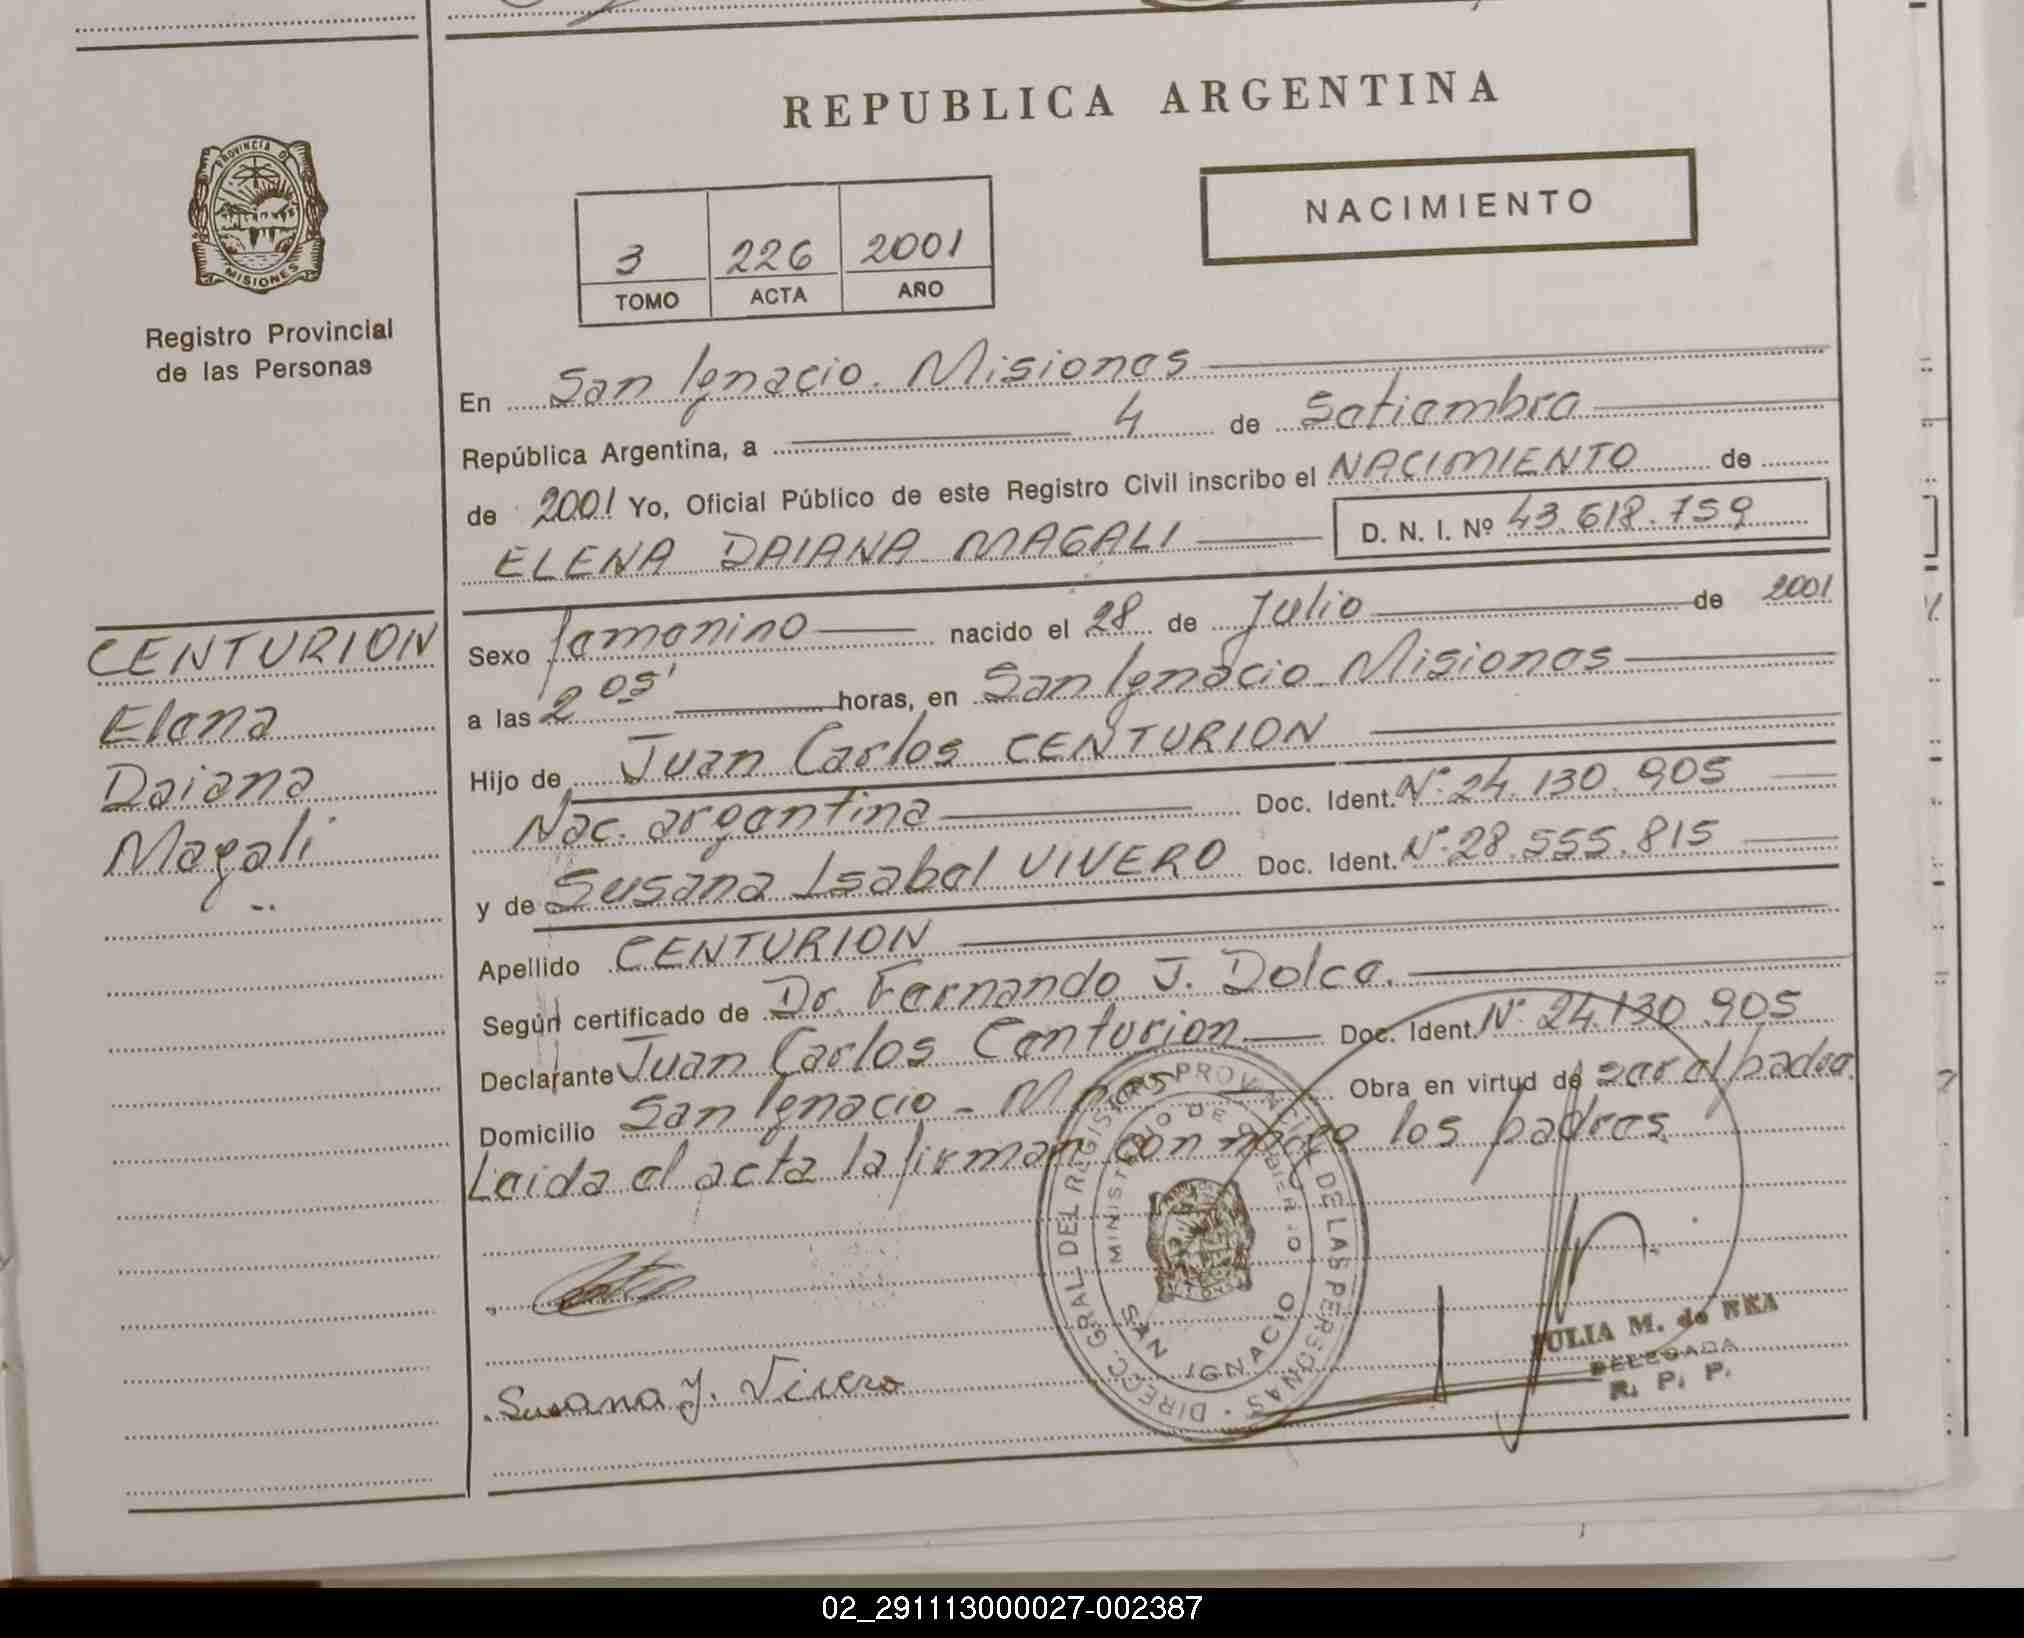 REPUBLICA ARGENTINA
PROVINCIA D
MISIONES
Registro Provincial
de las Personas
NACIMIENTO
3 226 2001
TOMO ACTA AÑO
En San Ignacio. Misiones
República Argentina, a 4 de Setiembre
de 2001 Yo, Oficial Público de este Registro Civil inscribo el NACIMIENTO de
ELENA DAIANA MAGALI D. N. I. Nº 43.618.759
CENTURION
Elena
Daiana
Magali
Sexo femenino nacido el 28 de Julio de 2001
a las 2 05' horas, en San Ignacio. Misiones
Hijo de Juan Carlos CENTURION
Nac. argentina Doc. Ident. Nº 24.130.905
y de Susana Isabel VIVERO Doc. Ident. Nº 28.555.815
Apellido CENTURION
Según certificado de Dr. Fernando J. Dolce.
Declarante Juan Carlos Centurion Doc. Ident. Nº 24.130.905
Domicilio San Ignacio - Mnes Obra en virtud de ser el padre
Leida el acta la firman con migo los padres.
DIRECC. GRAL DEL REGISTRO PROVINCIAL DE LAS PERSONAS
MINISTERIO DE GOBIERNO
SAN IGNACIO
Susana I. Vivero
JULIA M. de
DELEGADA
R. P. P.
02_291113000027-002387